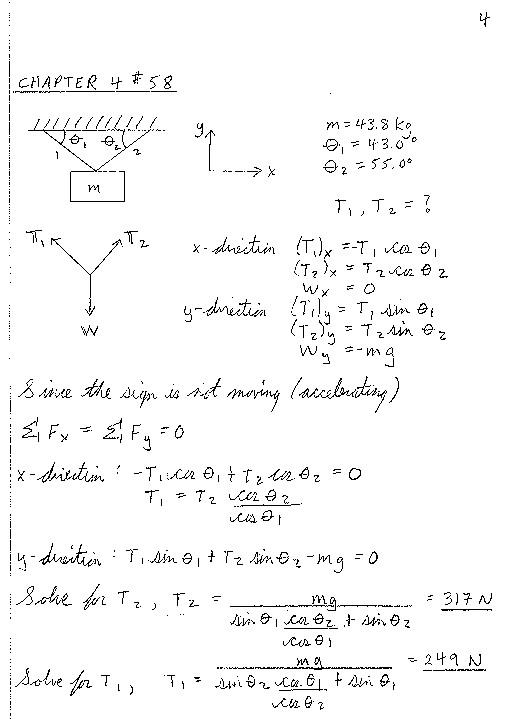 4
CHAPTER 4 #58
θ₁ θ₂
1 2
m
y
x
m = 43.8 kg
θ₁ = 43.0°
θ₂ = 55.0°
T₁, T₂ = ?
T₁ T₂
W
x-direction (T₁)ₓ = -T₁ cos θ₁
(T₂)ₓ = T₂ cos θ₂
Wₓ = 0
y-direction (T₁)y = T₁ sin θ₁
(T₂)y = T₂ sin θ₂
Wy = -mg
Since the sign is not moving (accelerating)
Σ Fₓ = Σ Fy = 0
x-direction : -T₁ cos θ₁ + T₂ cos θ₂ = 0
T₁ = T₂ cos θ₂ / cos θ₁
y-direction : T₁ sin θ₁ + T₂ sin θ₂ - mg = 0
Solve for T₂, T₂ = mg / (sin θ₁ cos θ₂ / cos θ₁ + sin θ₂) = 317 N
Solve for T₁, T₁ = mg / (sin θ₂ cos θ₁ / cos θ₂ + sin θ₁) = 249 N